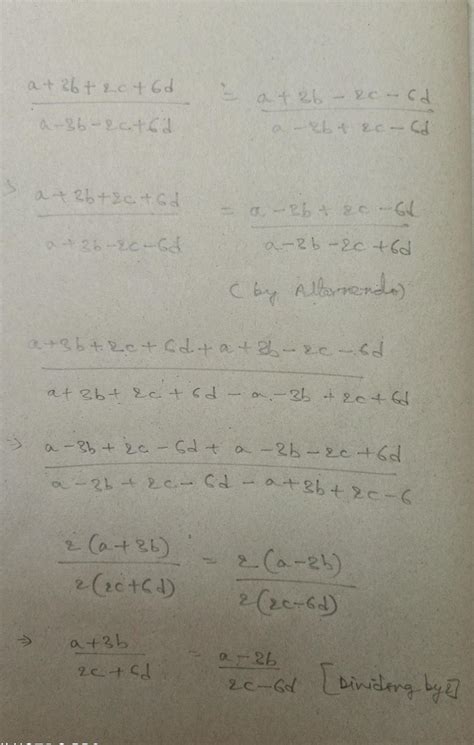 a+3b+2c+6d / a-3b-2c+6d = a+3b-2c-6d / a-3b+2c-6d
⇒ a+3b+2c+6d / a+3b-2c-6d = a-3b+2c-6d / a-3b-2c+6d
(by Alternendo)
a+3b+2c+6d+a+3b-2c-6d / a+3b+2c+6d-a-3b+2c+6d
⇒ a-3b+2c-6d+a-3b-2c+6d / a-3b+2c-6d-a+3b+2c-6
2(a+3b) / 2(2c+6d) = 2(a-3b) / 2(2c-6d)
⇒ a+3b / 2c+6d = a-3b / 2c-6d [Dividing by 2]